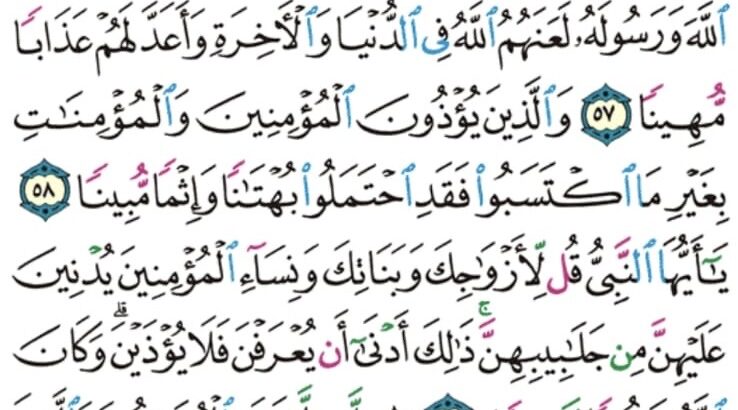 ٱللَّهَ وَرَسُولَهُۥ لَعَنَهُمُ ٱللَّهُ فِي ٱلدُّنْيَا وَٱلْأَخِرَةِ وَأَعَدَّ لَهُمْ عَذَابًا
مُّهِينًا ٥٧ وَٱلَّذِينَ يُؤْذُونَ ٱلْمُؤْمِنِينَ وَٱلْمُؤْمِنَٰتِ
بِغَيْرِ مَا ٱكْتَسَبُوا۟ فَقَدِ ٱحْتَمَلُوا۟ بُهْتَٰنًا وَإِثْمًا مُّبِينًا ٥٨
يَٰٓأَيُّهَا ٱلنَّبِيُّ قُل لِّأَزْوَٰجِكَ وَبَنَاتِكَ وَنِسَآءِ ٱلْمُؤْمِنِينَ يُدْنِينَ
عَلَيْهِنَّ مِن جَلَٰبِيبِهِنَّ ۚ ذَٰلِكَ أَدْنَىٰٓ أَن يُعْرَفْنَ فَلَا يُؤْذَيْنَ ۗ وَكَانَ